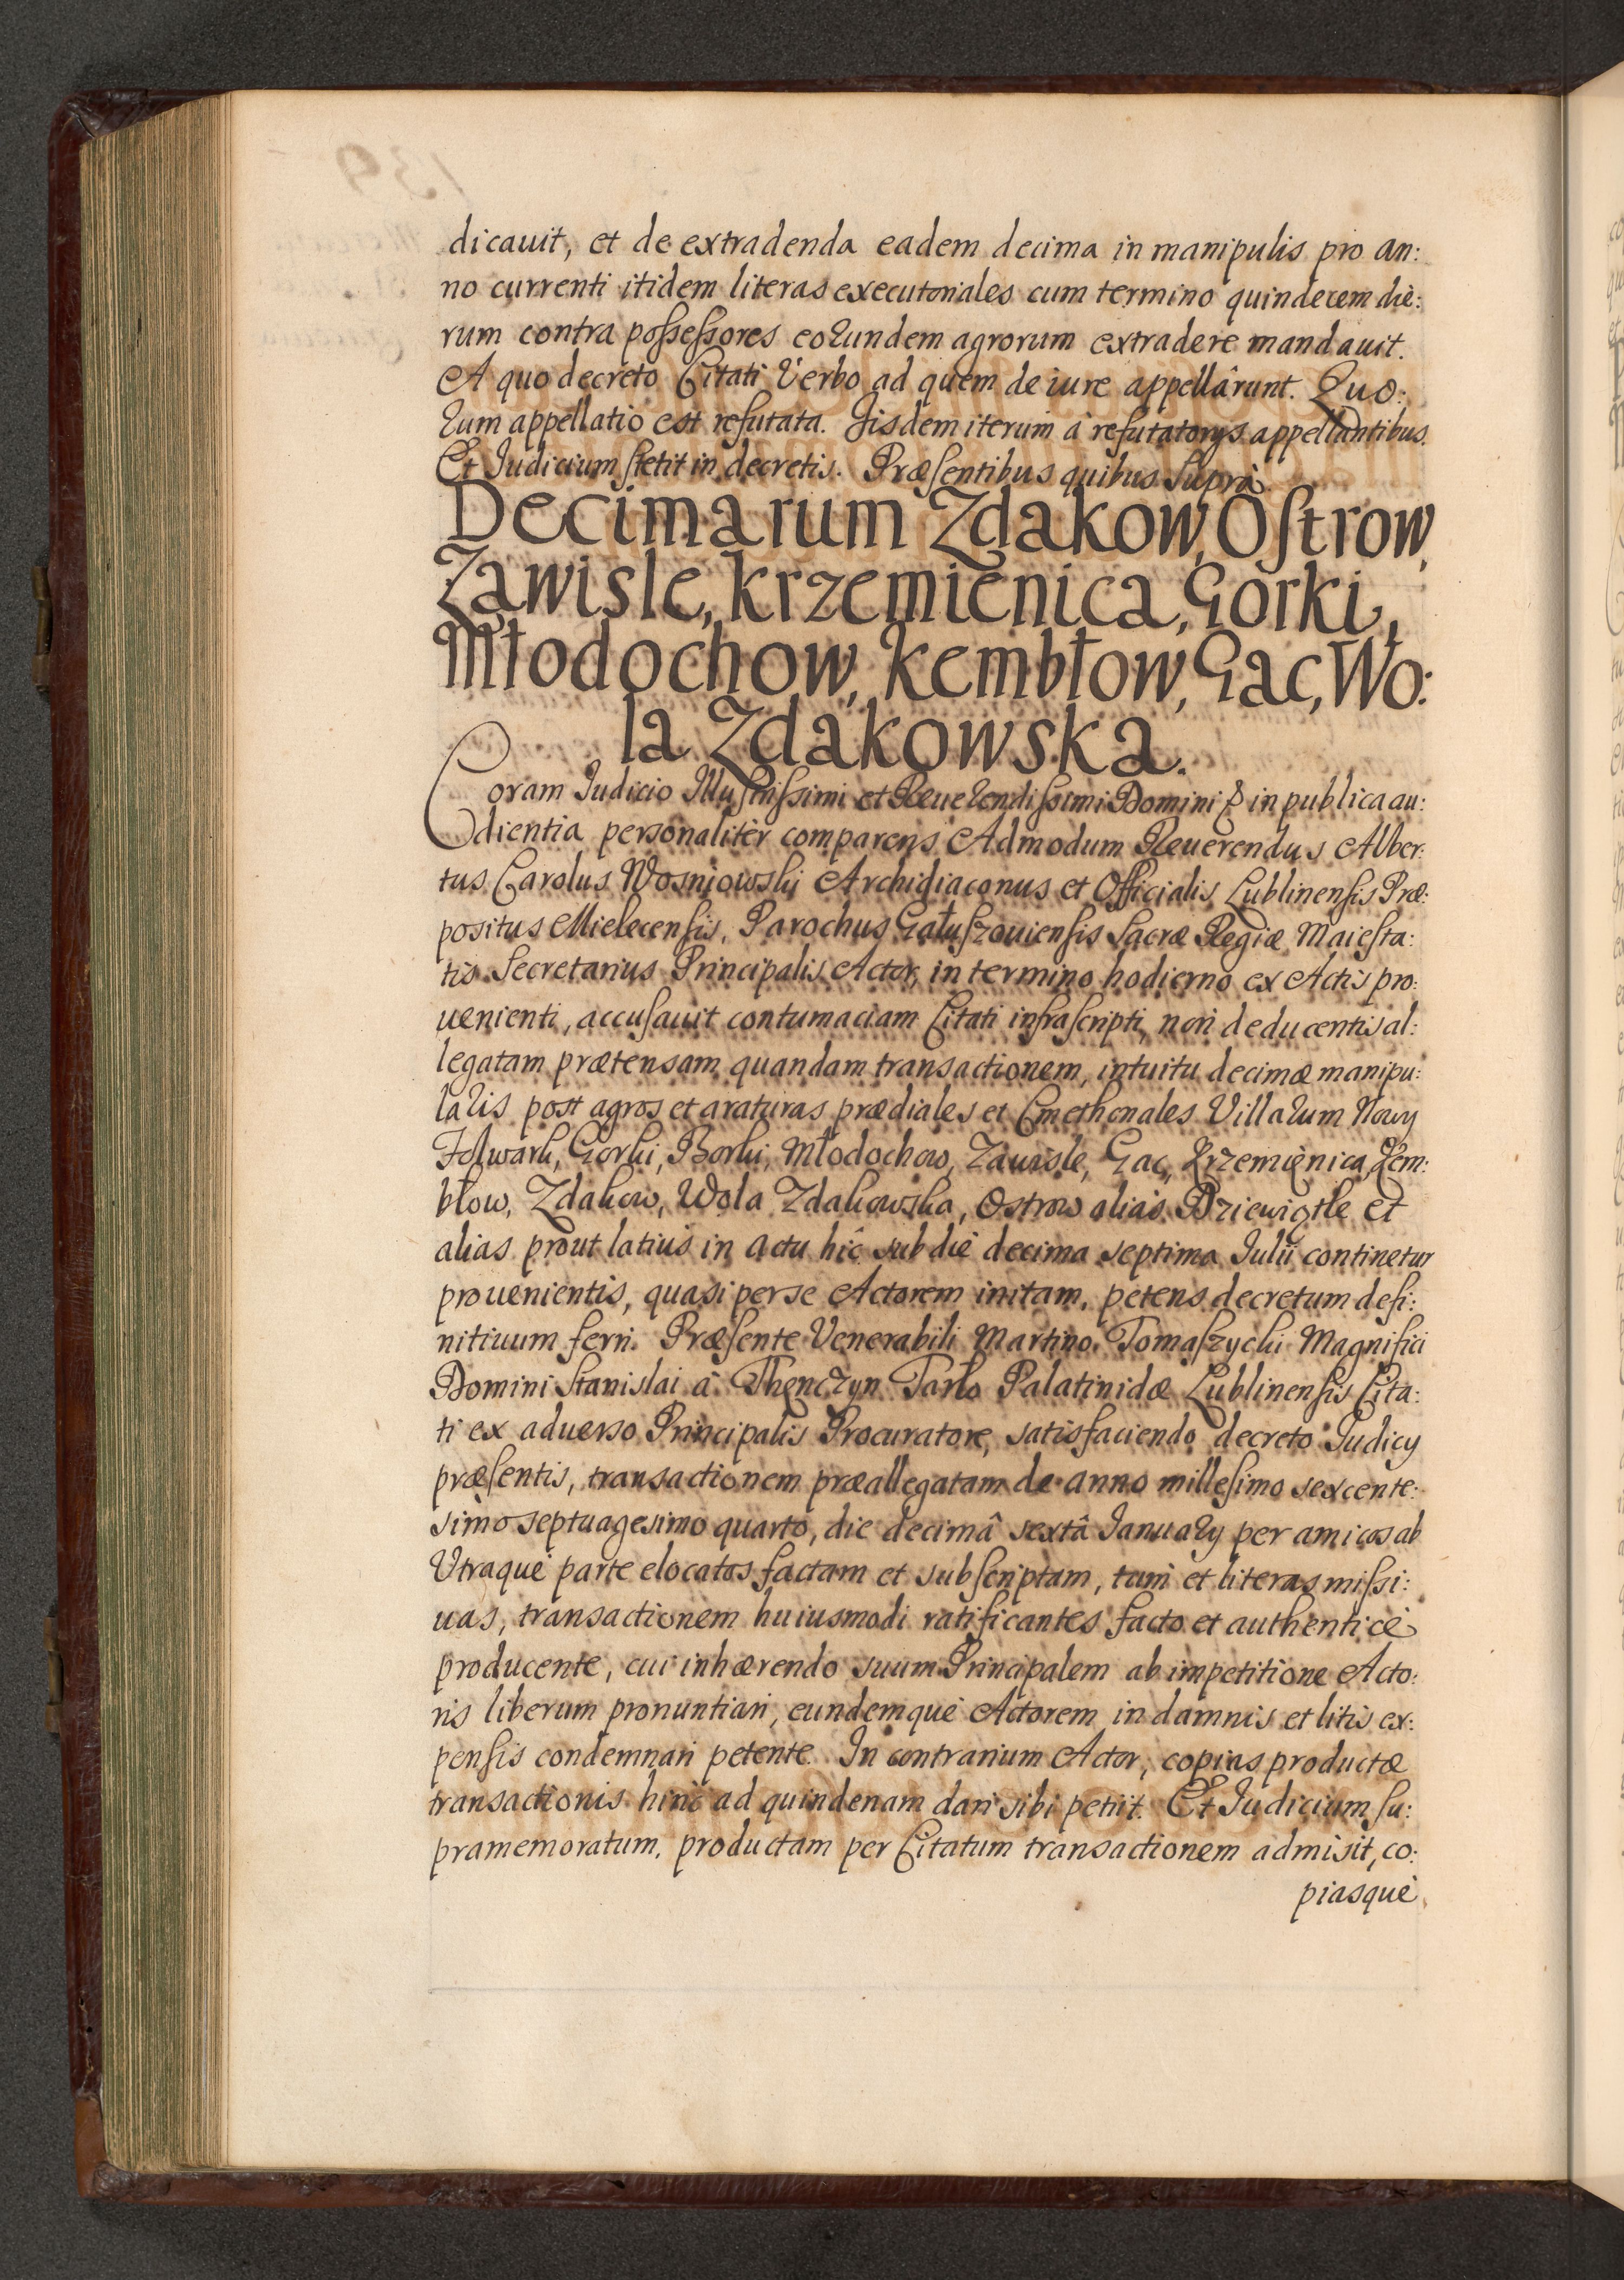 dicauit, et de extradenda eadem decima in manipulis pro an:
no currenti itidem literas executoriales cum termino quindecem die:
rum contra possessores eorundem agrorum extradere mandauit.
A quo decreto Citati Verbo ad quem de iure appellârunt. Quo:
rum appellatio est refutata. Iisdem iterum á refutatorys appellantibus.
Et Iudicium stetit in decretis. Præsentibus quibus suprà
Decimarum Zdakow, Ostrow,
Zawisle, Krzemienica, Gorki,
Młodochow, Kembłow, Gac, Wo:
la Zdakowska.
Coram Iudicio Illustrissimi et Reuerendissimi Domini & in publica au:
dientia personalitèr comparens Admodum Reuerendus Alber:
tus Carolus Wosniowski Archidiaconus et Officialis Lublinensis Præ:
positus Mielecensis, Parochus Gałuszouiensis Sacræ Regiæ Maiesta:
tis Secretarius Principalis Actor, in termino hodierno ex Actis pro:
uenienti, accusauit contumaciam Citati infrascripti, non deducentis al:
legatam prætensam quandam transactionem, intuitu decimæ manipu:
laris post agros et araturas prædiales et Cmethonales Villarum Nowy
Folwark, Gorki, Borki, Młodochow, Zawisle, Gac, Krzemięnica, Kem:
błow, Zdakow, Wola Zdakowska, Ostrow aliàs Dziewiątle et
alias prout latius in actu hîc sub die decima septima Iulii continetur
prouenientis, quasi per se Actorem initam, petens decretum defi:
nitiuum ferri. Præsente Venerabili Martino Tomaszycki Magnifici
Domini Stanislai â Thenczyn Tarło Palatinidæ Lublinensis Cita:
ti ex aduerso Principalis Procuratore, satisfaciendo decreto Iudicy
præsentis, transactionem præallegatam de anno millesimo sexcente:
simo septuagesimo quarto, die decimâ sextâ Ianuary per amicos ab
Vtraque parte elocatos factam et subscriptam, tum et literas missi:
uas, transactionem huiusmodi ratificantes facto et authenticè
producente, cui inhærendo suum Principalem ab impetitione Acto:
ris liberum pronuntiari, eundemque Actorem in damnis et litis ex:
pensis condemnari petente. In contrarium Actor, copias productæ
transactionis hinc ad quindenam dari sibi petiit. Et Iudicium su:
pramemoratum, productam per Citatum transactionem admisit, co:
piasque